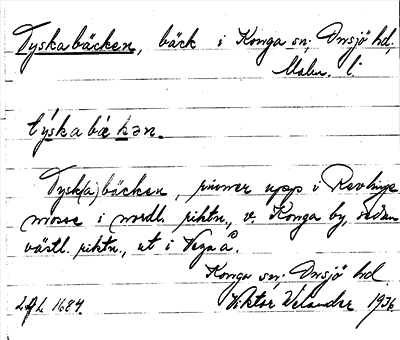 Tyskabäcken, bäck i Konga sn; Onsjö hd,
Malm. l.
týskabækən.
Tysk(a)bäcken, rinner upp i Revlinge
mosse i nordl. riktn., v. Konga by, sedan
västl. riktn., ut i Vegeå.
Konga sn; Onsjö hd
LAL 1684. Viktor Velander 1936